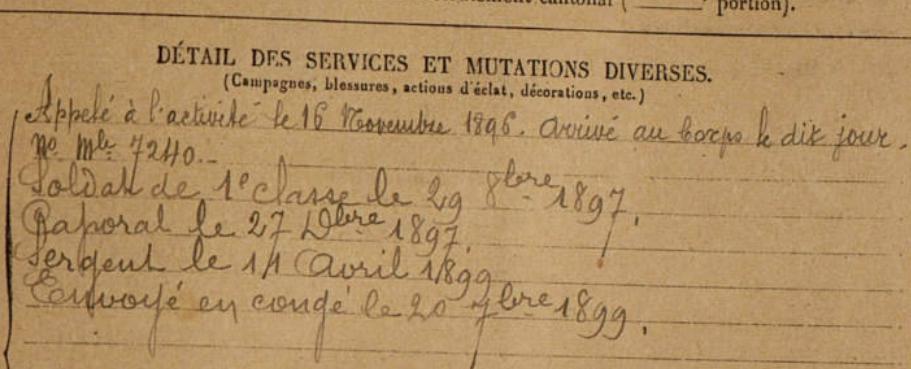 cantonal ( portion).
DÉTAIL DES SERVICES ET MUTATIONS DIVERSES.
(Campagnes, blessures, actions d'éclat, décorations, etc.)
Appelé à l'activité le 16 Novembre 1896. Arrivé au Corps le dit jour.
No Mle 7240.-
Soldat de 1e classe le 29 8bre 1897.
Caporal le 27 Dbre 1897.
Sergent le 14 Avril 1899
Envoyé en congé le 20 7bre 1899.